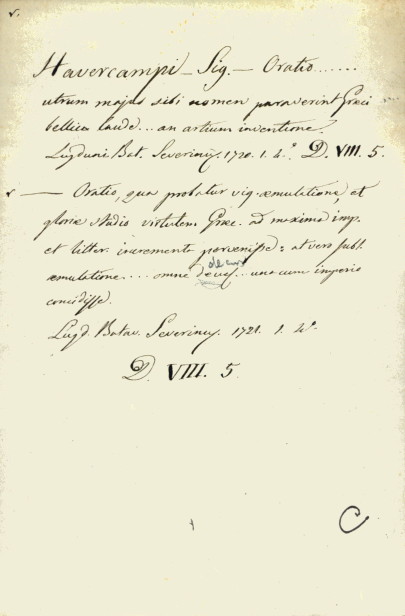 Havercampi - Sig. - Oratio......
utrum majus sibi nomen paraverint Græci
bellica laude... an artium inventione.
Lugduni Bat. Severinus. 1720. 1. 4.° D. VIII. 5.
— Oratio, qua probatur vig. æmulatione, et
gloriæ studio virtutem Græc. ad maxima imp.
et litter. incrementa pervenisse: at vero subl.
decus
æmulatione.... omne decus... una cum imperio
concidisse.
Lugd. Batav. Severinus. 1721. 1. 4.°
D. VIII. 5
C